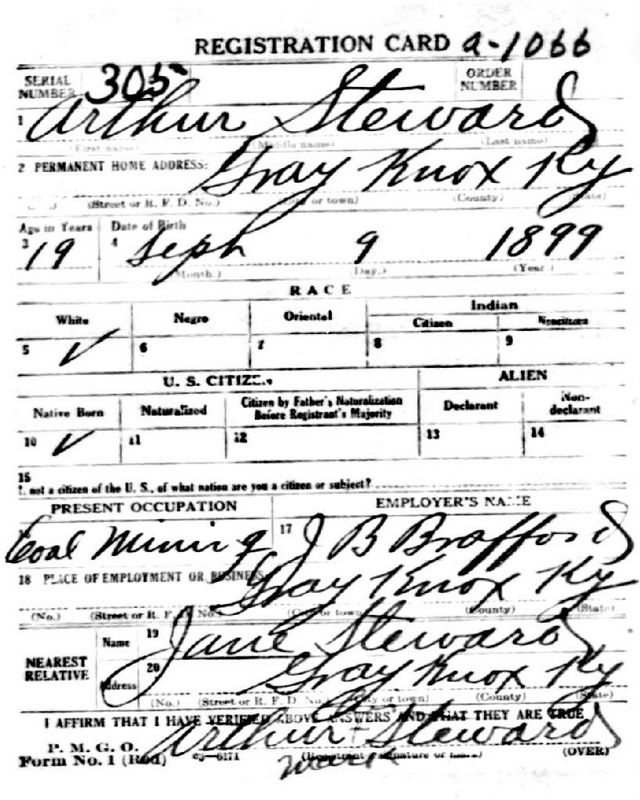 REGISTRATION CARD a-1066
SERIAL NUMBER 305 ORDER NUMBER
1 Arthur Steward
(First name) (Middle name) (Last name)
2 PERMANENT HOME ADDRESS: Gray Knox Ky
(Street or R. F. D. No.) (City or town) (County) (State)
Age in Years Date of Birth
3 19 4 Seph 9 1899
(Month.) (Day.) (Year.)
RACE
White Negro Oriental Indian
Citizen Noncitizen
5 ✓ 6 7 8 9
U. S. CITIZEN ALIEN
Native Born Naturalized Citizen by Father's Naturalization Before Registrant's Majority Declarant Non-declarant
10 ✓ 11 12 13 14
15
If not a citizen of the U. S., of what nation are you a citizen or subject?
PRESENT OCCUPATION EMPLOYER'S NAME
Coal Mining 17 J B Brafford
18 PLACE OF EMPLOYMENT OR BUSINESS Gray Knox Ky
(No.) (Street or R. F. D. No.) (City or town) (County) (State)
NEAREST RELATIVE Name 19 Jane Steward
Address 20 Gray Knox Ky
(No.) (Street or R. F. D. No.) (City or town) (County) (State)
I AFFIRM THAT I HAVE VERIFIED ABOVE ANSWERS AND THAT THEY ARE TRUE
P. M. G. O.
Form No. 1 (Red) Arthur + Steward
mark (Registrant's signature or mark) (OVER)